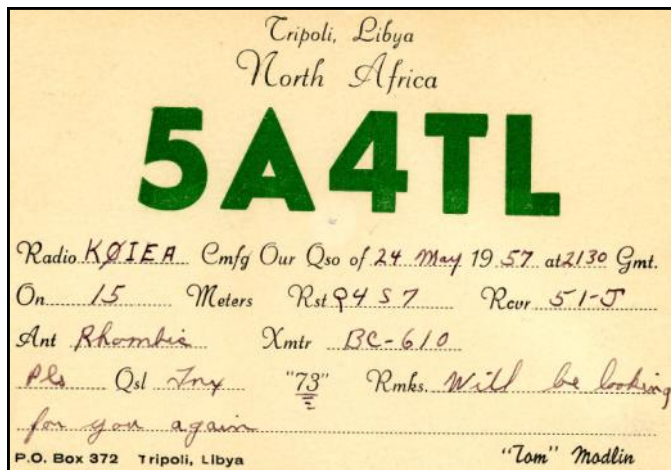 Tripoli, Libya
North Africa
5A4TL
Radio KØIEA Cmfg Our Qso of 24 May 1957 at 2130 Gmt.
On 15 Meters Rst Q4 S7 Rcvr 51-J
Ant Rhombic Xmtr BC-610
Pls Qsl Tnx "73" Rmks. Will be looking
for you again
P.O. Box 372 Tripoli, Libya "Tom" Modlin